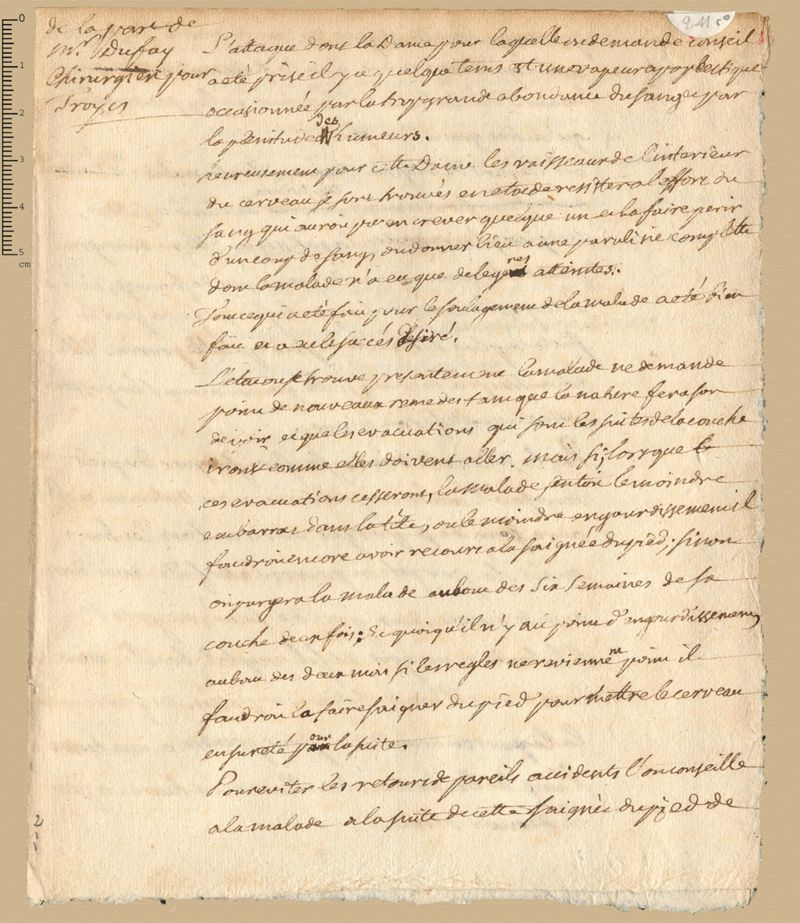 de la part de
Mr. Dufay
Chirurgien pour
Troyes
L'attaque dont la Dame pour laquelle on demande conseil
a eté prise il y a quelque tems est une vapeur apoplectique
occasionnée par la trop grande abondance du sang et par
la plenitude des humeurs.
heureusement pour cette Dame les vaisseaux de l'interieur
du cerveau se sont trouvés en etat de resister a l'effort du
sang qui auroit pu en crever quelque un et la faire perir
d'un coup de sang, ou donner lieu a une paralisie complette
dont la malade n'a eu que de legeres atteintes.
Tout ce qui a eté fait pour le soulagement de la malade a eté bien
fait et a eu le succés desiré.
L'etat ou se trouve presentement la malade ne demande
point de nouveaux remedes tant que la nature fera son
devoir et que les evacuations qui sont les suites de la couche
iront comme elles doivent aller. mais si, lorsque
ces evacuations cesseront, la malade sentoit le moindre
embarras dans la tête, ou le moindre engourdissement il
faudroit encore avoir recours a la saignée du pied; sinon
on purgera la malade au bout des six semaines de sa
couche deux fois; et quoiqu'il n'y ait point d'engourdissement
au bout des deux mois si les regles ne reviennent point il
faudroit la faire saigner du pied pour mettre le cerveau
en sureté pour la suite.
Pour eviter les retours de pareils accidents l'on conseille
a la malade a la suite de cette saignée du pied de